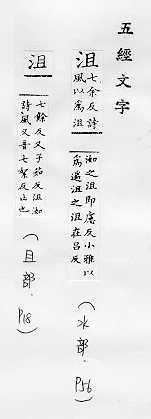 五經文字
沮
七余反詩
風以為沮
洳之沮即慮反小雅以
為遄沮之沮在呂反
(水部. P56)
沮
七餘反又子茹反沮洳
詩風又音七絮反止也
(且部. P18)